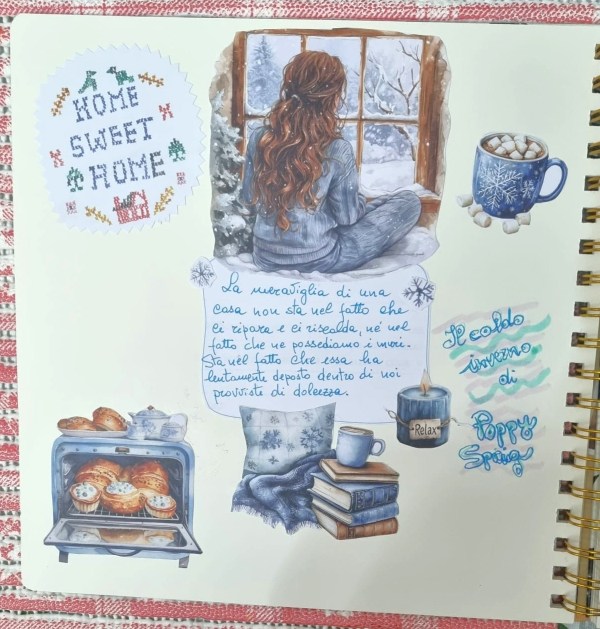 HOME
SWEET
HOME
La meraviglia di una
casa non sta nel fatto che
ci ripara e ci riscalda, né nel
fatto che ne possediamo i muri.
Sta nel fatto che essa ha
lentamente deposto dentro di noi
provviste di dolcezza.
Il caldo
inverno
di
Poppy
Spring
Relax